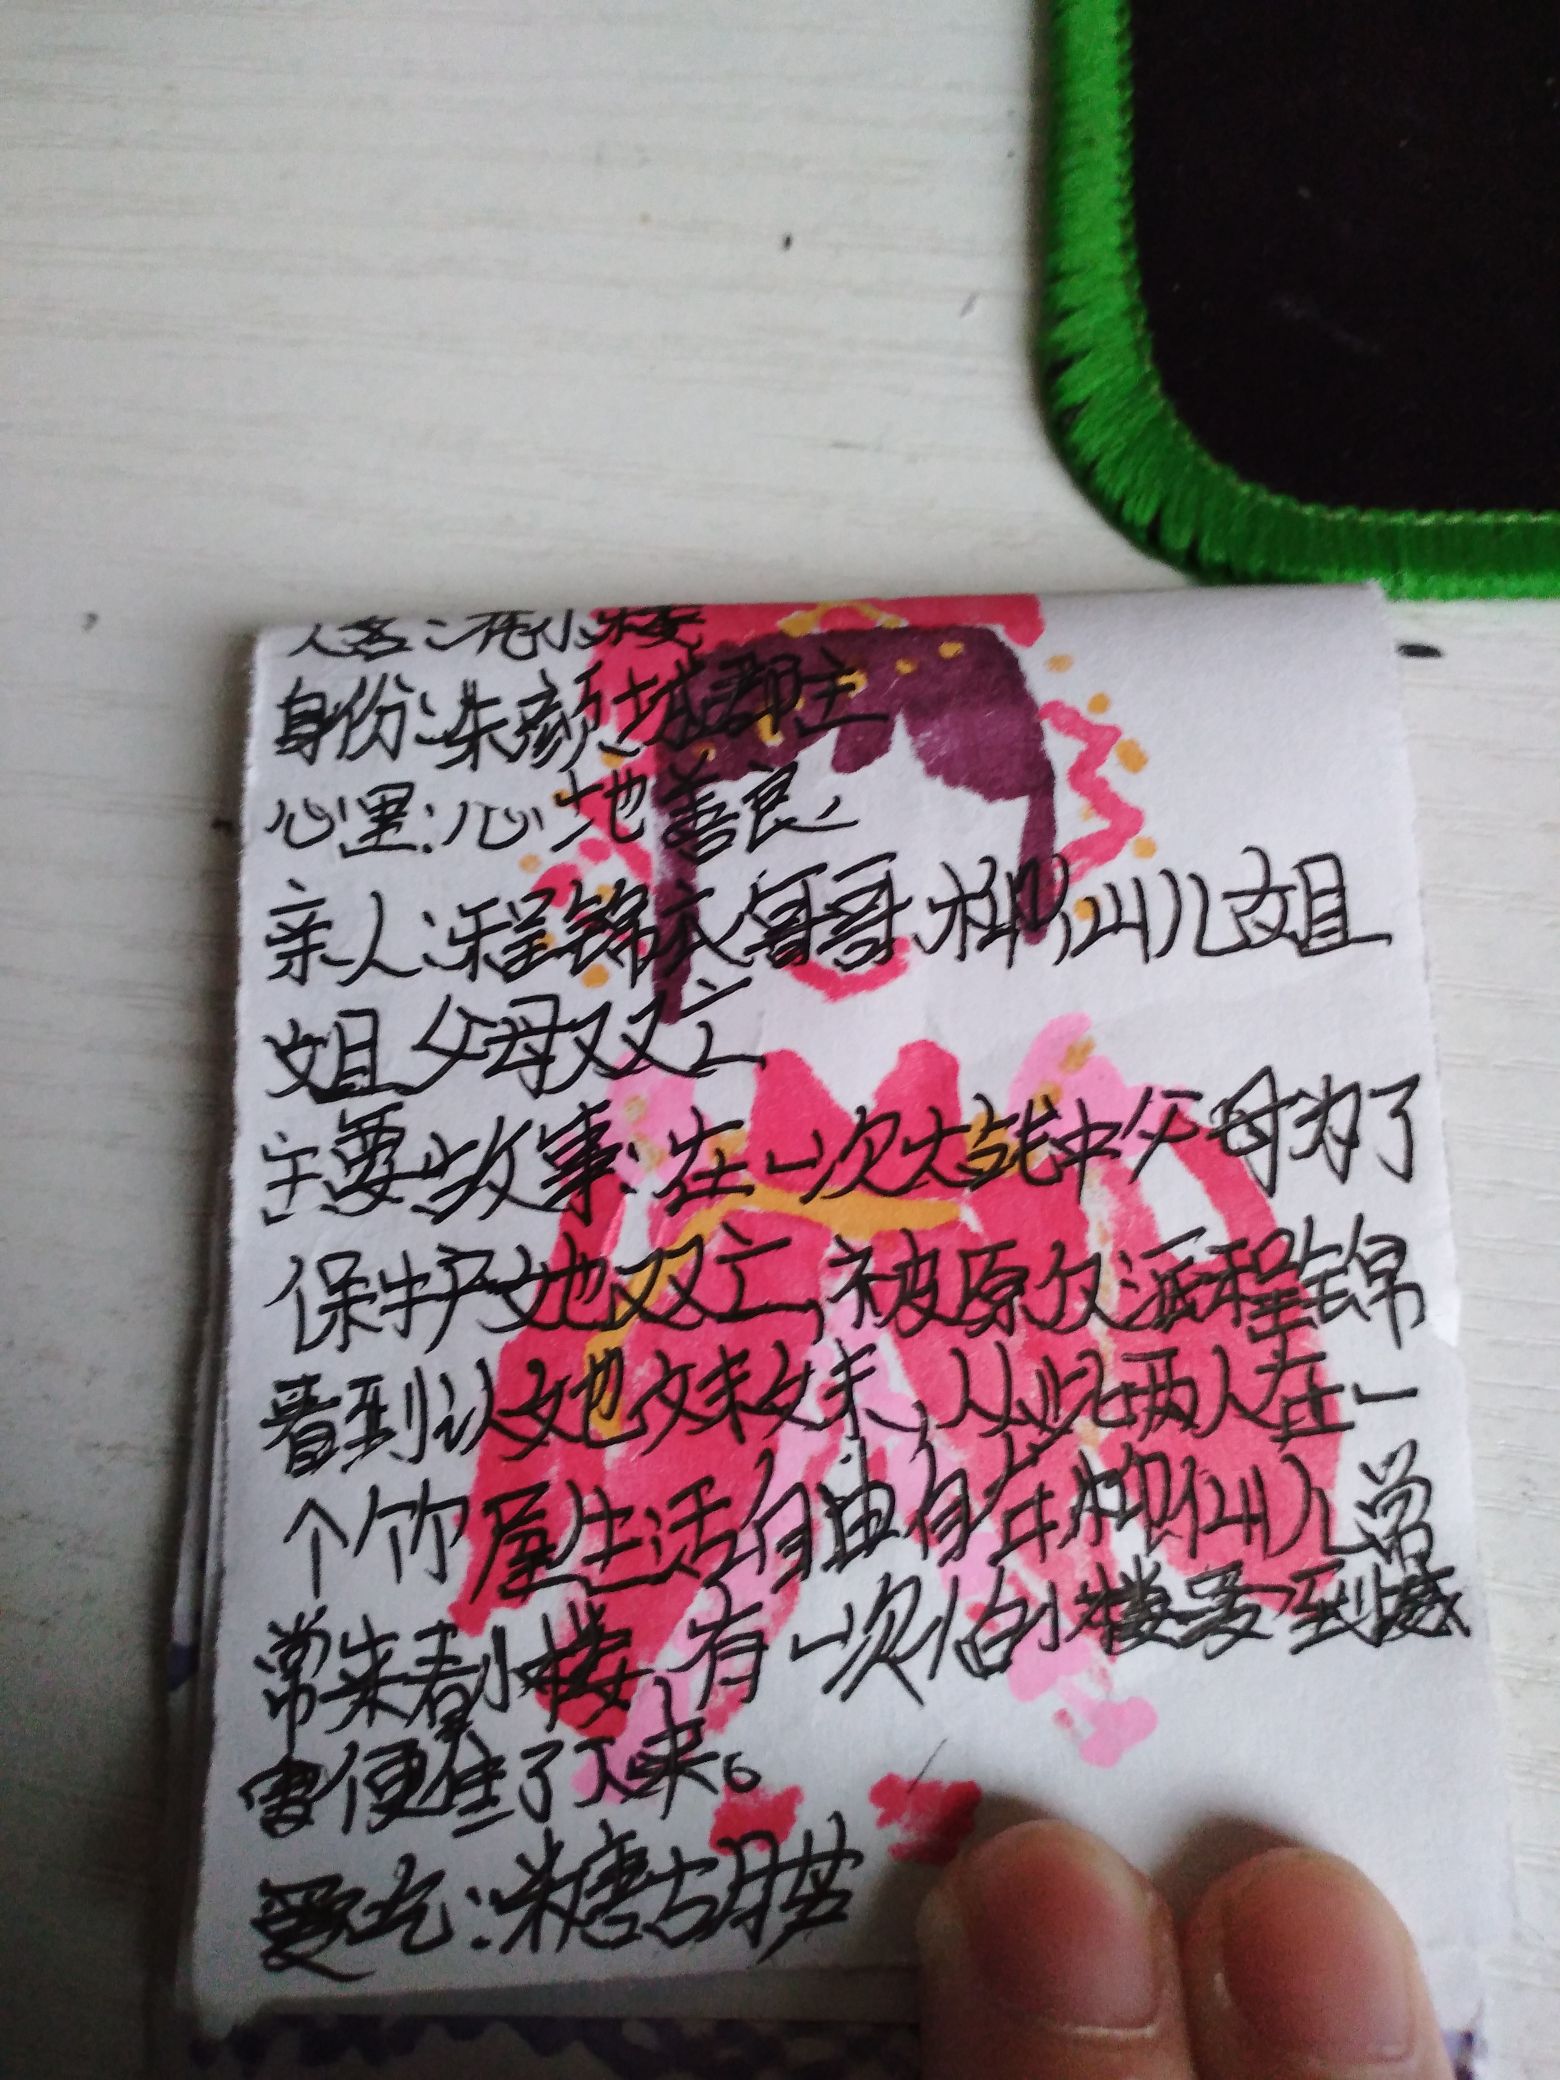 人名：花小楼
身份：朱颜城郡主
心里：心地善良、
亲人：程锦衣哥哥、柳仙儿姐
姐 父母双亡
主要故事：在一次大战中父母为了
保护她双亡，被原 派程锦
看到认她妹妹，从此两人在一
个竹屋生活自由自在柳仙儿常
常来看小楼，有一次怕小楼受到
害便住了下来。
爱吃：糖古月芦